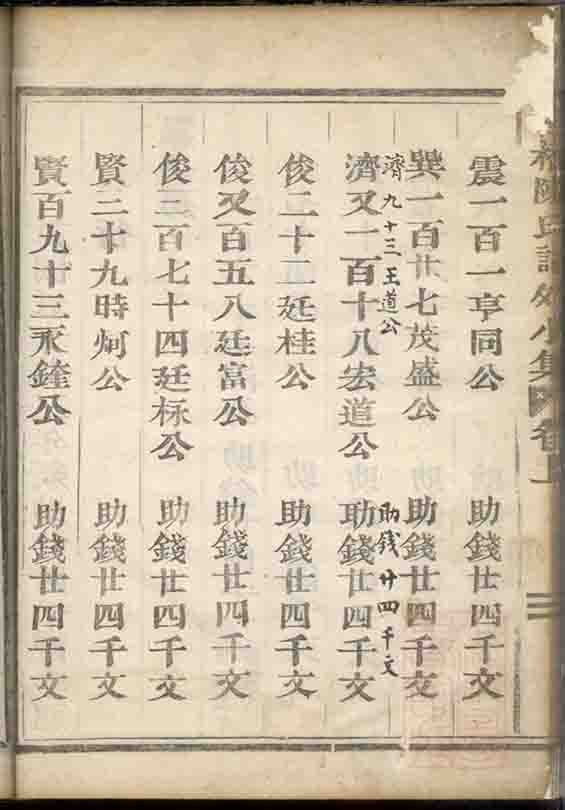 陳氏譜外小集 卷上
震一百一亨同公 助錢廿四千文
巽一百廿七茂盛公 助錢廿四千文
濟九十三王道公 助錢廿四千文
濟又一百十八宏道公 助錢廿四千文
俊二十二廷桂公 助錢廿四千文
俊又百五八廷富公 助錢廿四千文
俊三百七十四廷标公 助錢廿四千文
賢二十九時炯公 助錢廿四千文
賢百九十三永鏠公 助錢廿四千文